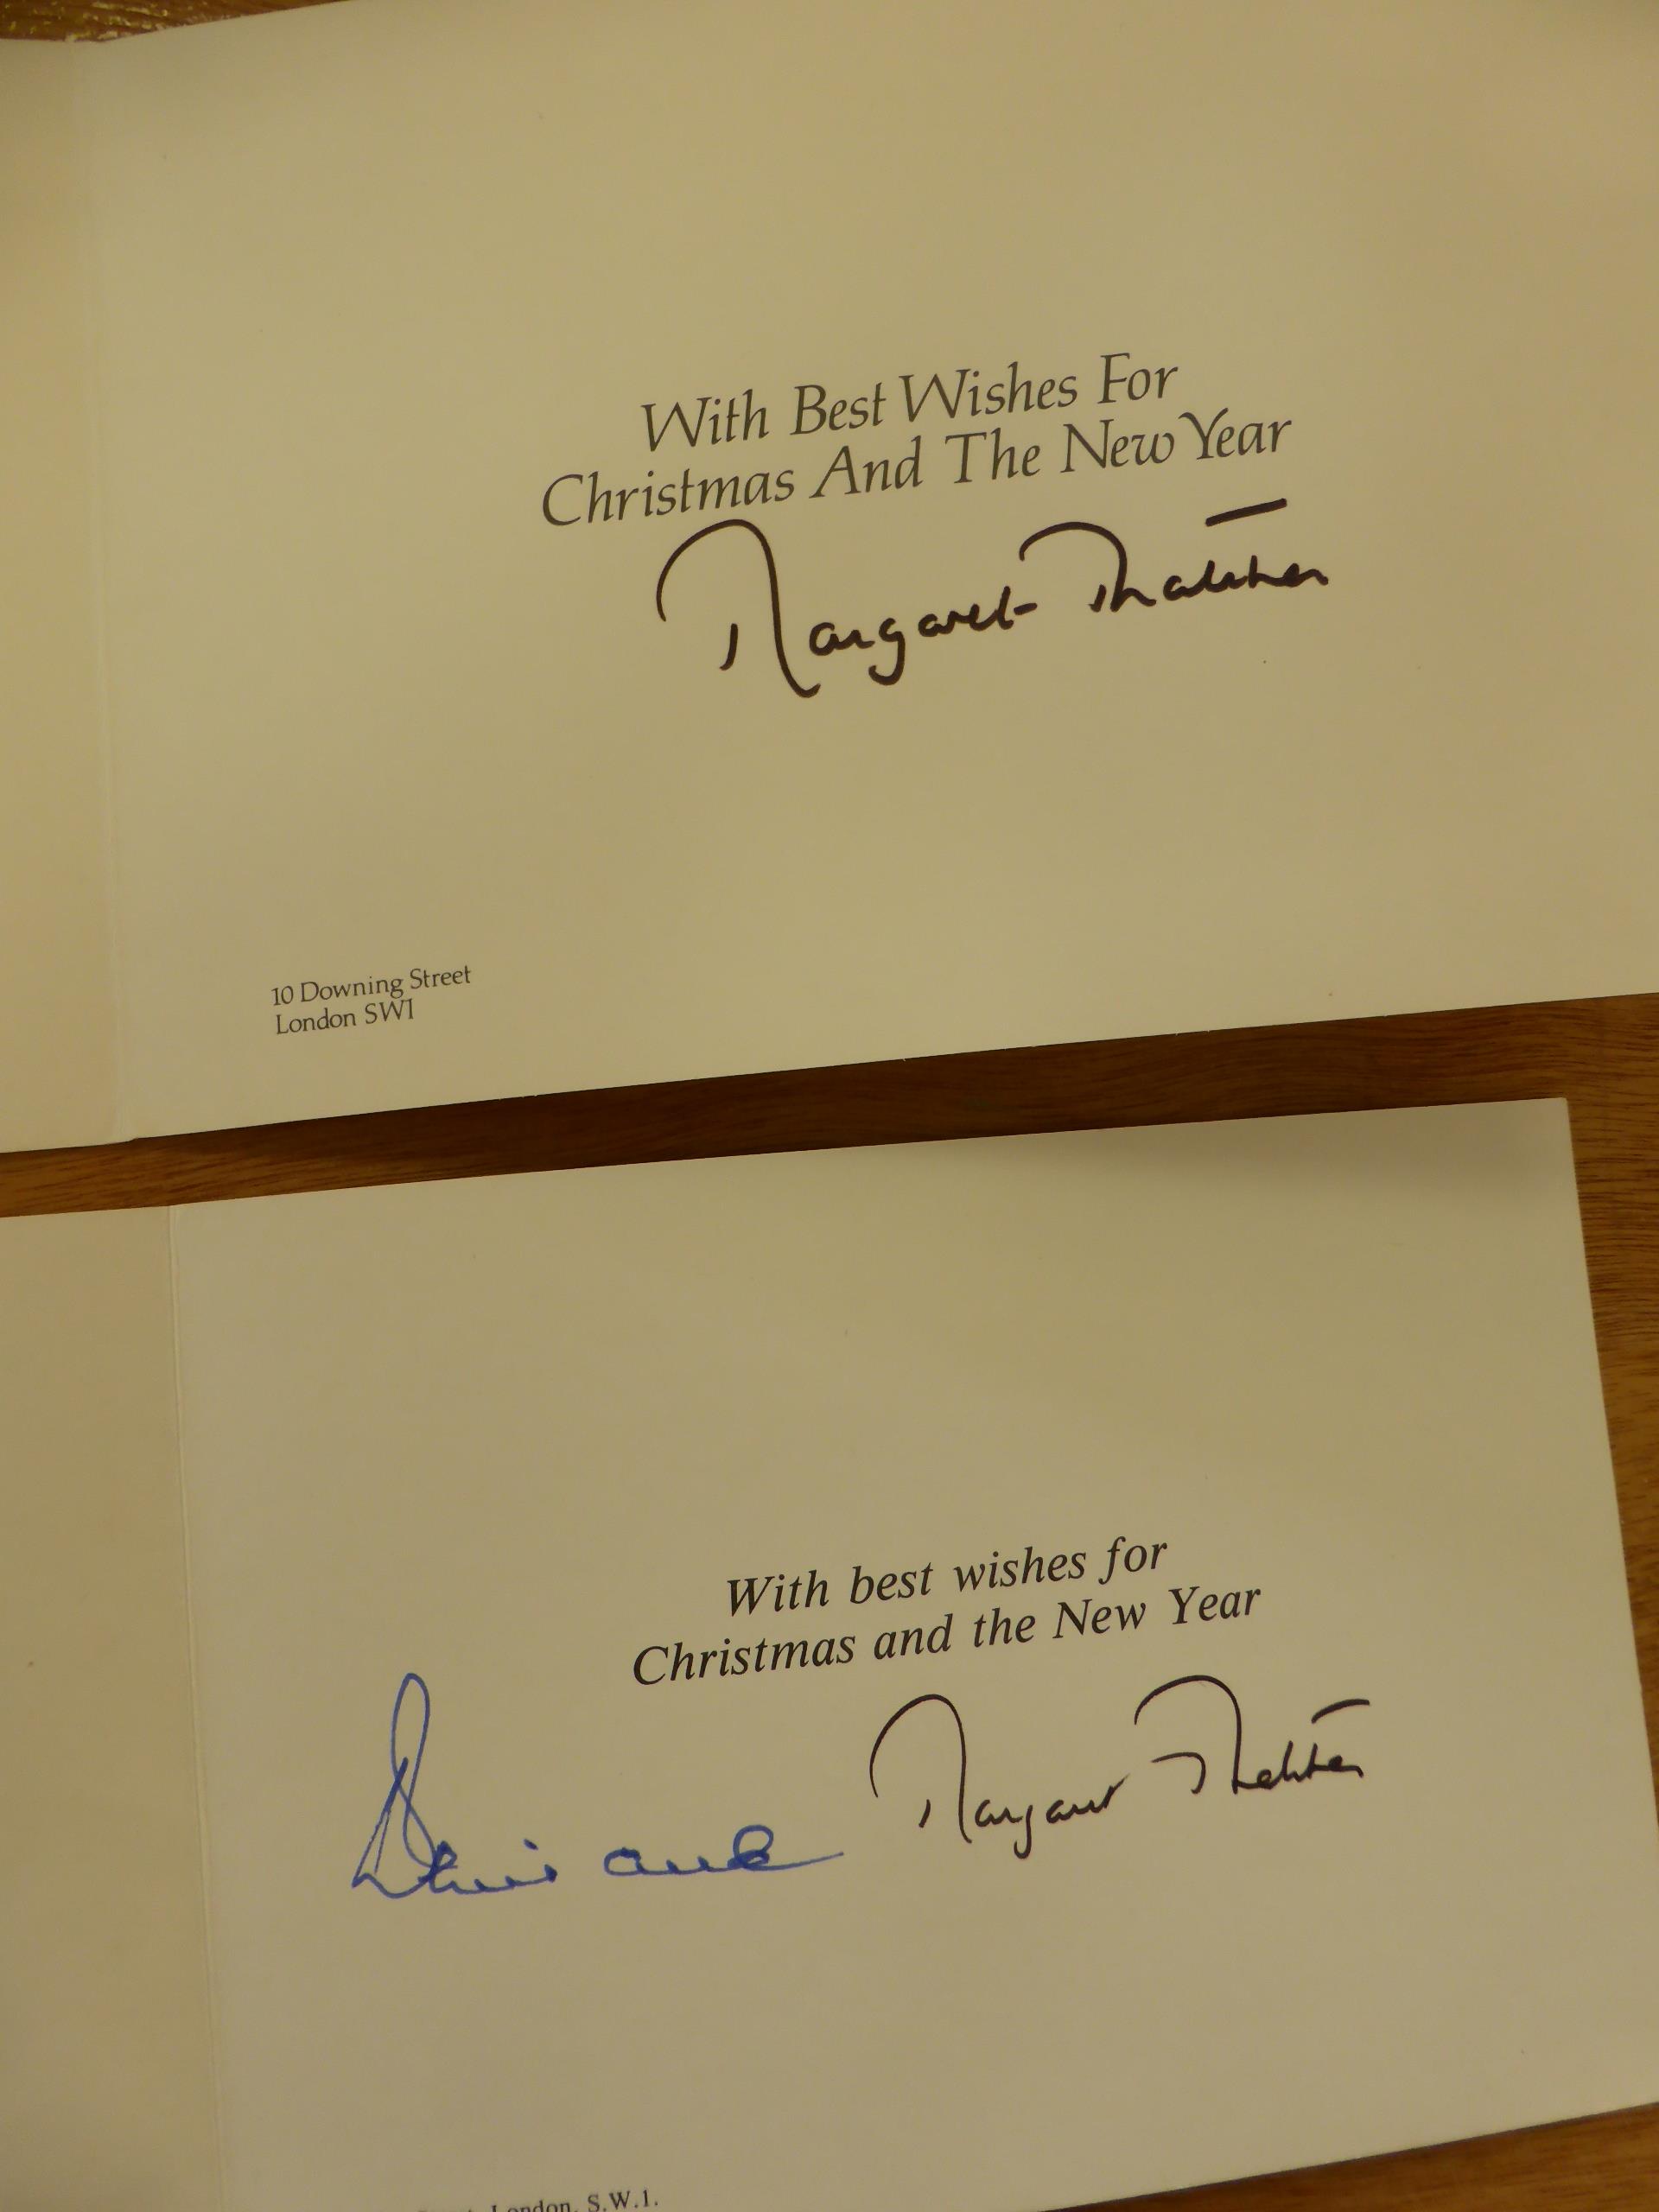 With Best Wishes For
Christmas And The New Year
Margaret Thatcher
10 Downing Street
London SW1
With best wishes for
Christmas and the New Year
Denis and Margaret Thatcher
London, S.W.1.